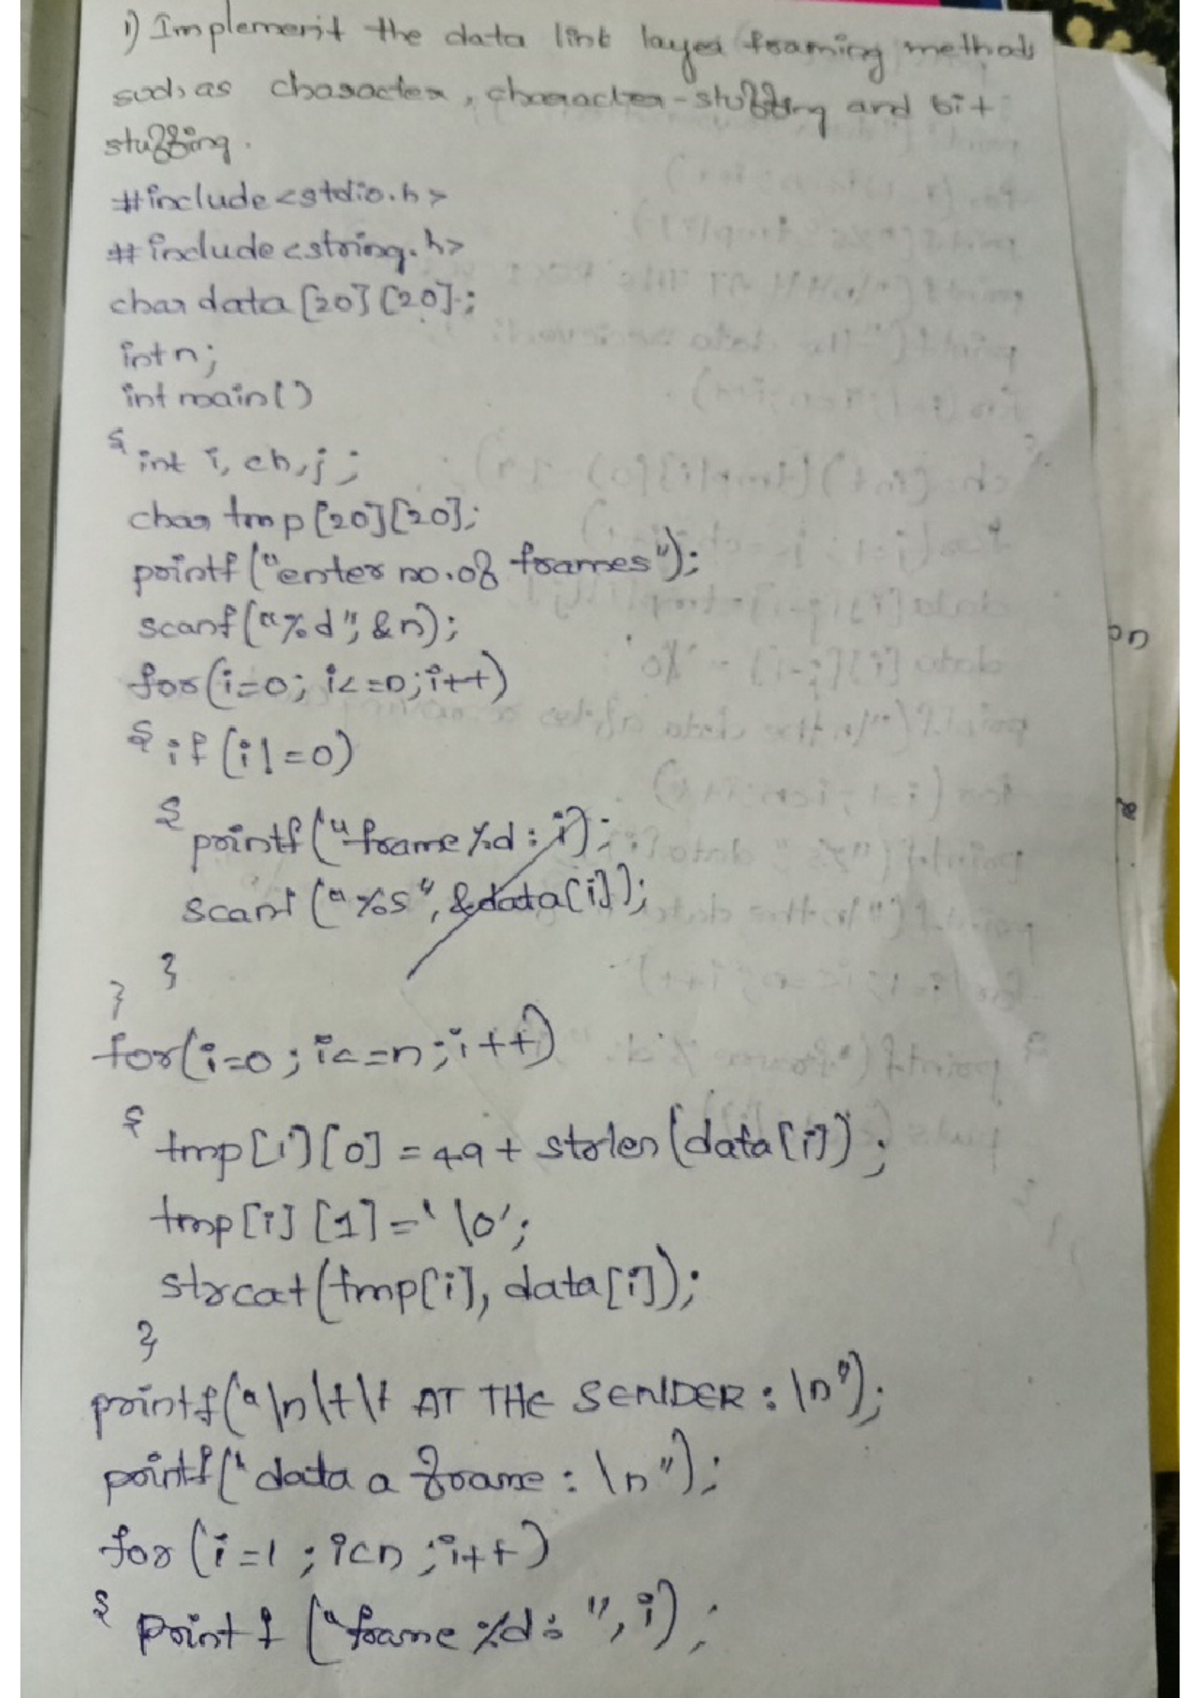 1) Implement the data link layer framing methods
such as character, character-stuffing and bit
stuffing.
#include <stdio.h>
#include <string.h>
char data [20] [20];
int n;
int main()
{ int i, ch, j;
char tmp [20] [20];
printf ("enter no. of frames");
scanf ("%d", &n);
for (i=0; i<=n; i++)
{ if (i!=0)
{ printf ("frame %d: i);
scanf ("%s", &data[i]);
}
}
for(i=0; i<=n; i++)
{ tmp[i][0] = 49 + strlen (data[i]);
tmp[i] [1] = '\0';
strcat (tmp[i], data[i]);
}
printf ("\n\t\t AT THE SENDER: \n");
printf (" data a frame : \n");
for (i=1; i<n; i++)
{ Print f ("frame %d: ", i);
on